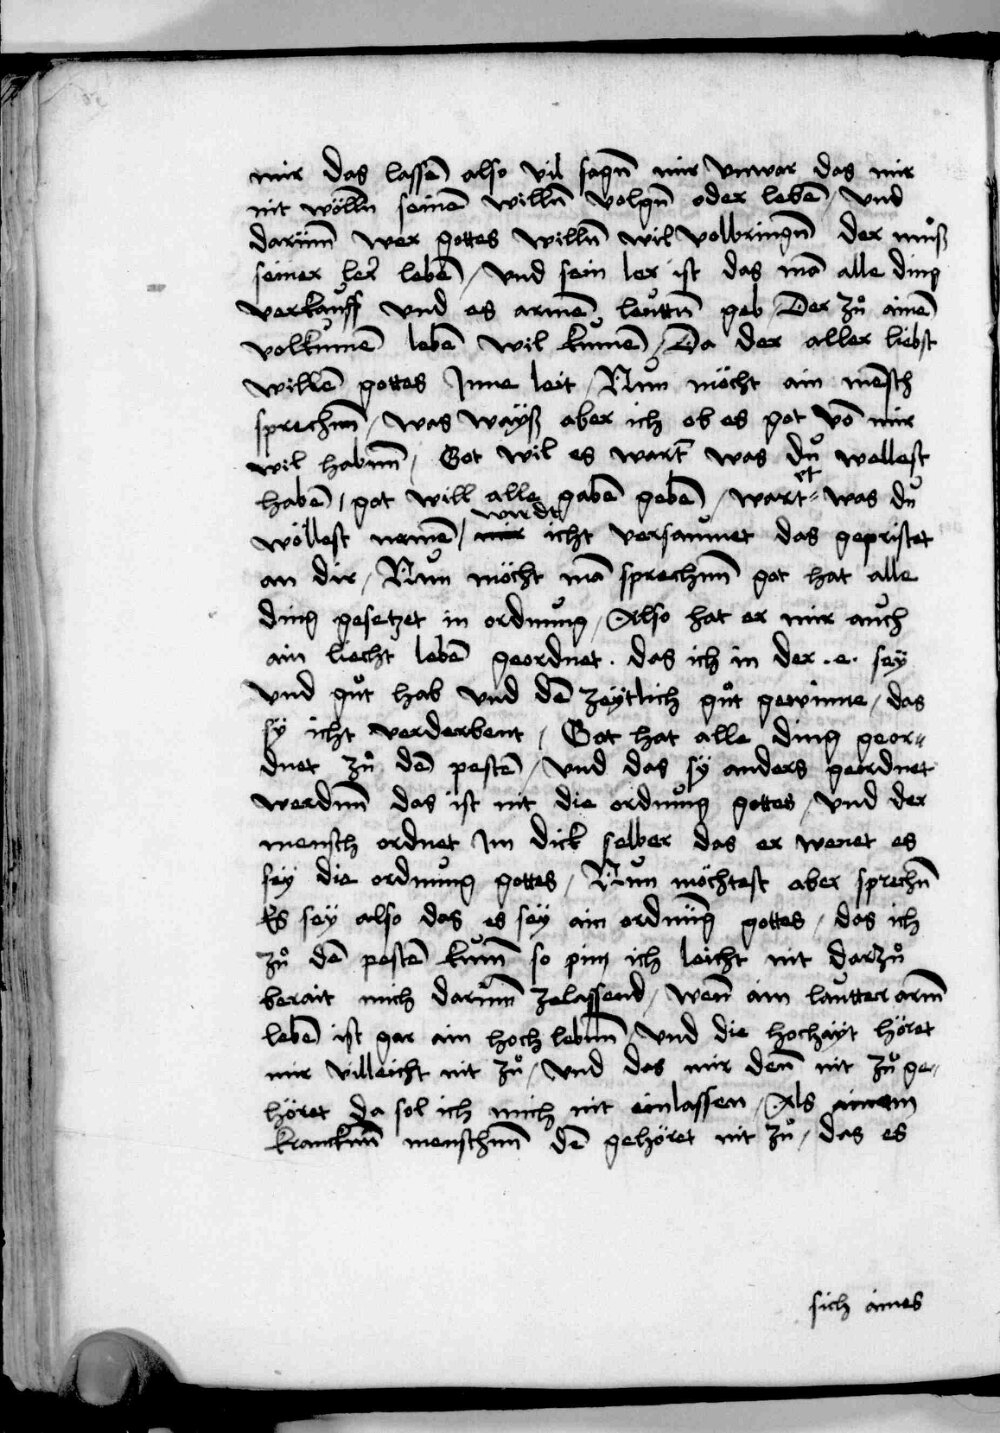 mir das lassē also vil sagn̄ mir vnwar das mir
nit wölln̄ seinē willn̄ volgn̄ oder lebē / vnd
darūm̄ wer gottes willn̄ wil volbringn̄ der můß
seiner ler lebē / vnd sein ler ist das mā alle ding
verkauff vnd es armē leuttn̄ geb / Der zů ainē
volkumē lebē wil kumē / Da der aller liebst
willē gottes Jnne leit / Nun möcht ain mēsch
sprechnn̄ / was wayß aber ich ob es got vō mir
wil habnn̄ / Got wil es wart was du wellest
habē / got will alle gabē gebē / wartet was du
wöllest nemē / wirdt mir icht versaumet das gepristet
an dir / Nun möcht mā sprechnn̄ got hat alle
ding gesetzet in ordnung / Also hat er mir auch
ain liecht lebē geordnet . das ich in der .e. sey
vnd gůt hab vnd dē zeytlich gůt gewinne / das
sy icht verderbent / Got hat alle ding geor„
dnet zů dē pestē / vnd das sy anders geordnet
werdnn̄ das ist nit die ordnung gottes / vnd der
mensch ordnet Jm dick selber das er wenet es
sey die ordnung gottes / Nun möchtest aber sprechn̄
Es sey also das es sey ain ordnūg gottes / das ich
zů dē pestē kum̄ so pin ich leicht nit darzů
berait mich darūm̄ zelassend / wen̄ ain lautter arm̄
lebē ist gar ain hoch lebnn̄ / vnd die hochayt höret
mir villeicht nit zů / vnd das mir den̄ nit zů ge„
höret da sol ich mich nit einlassen / Als ainem
krancknn̄ menschnn̄ dē gehöret nit zů / das es
sich aines